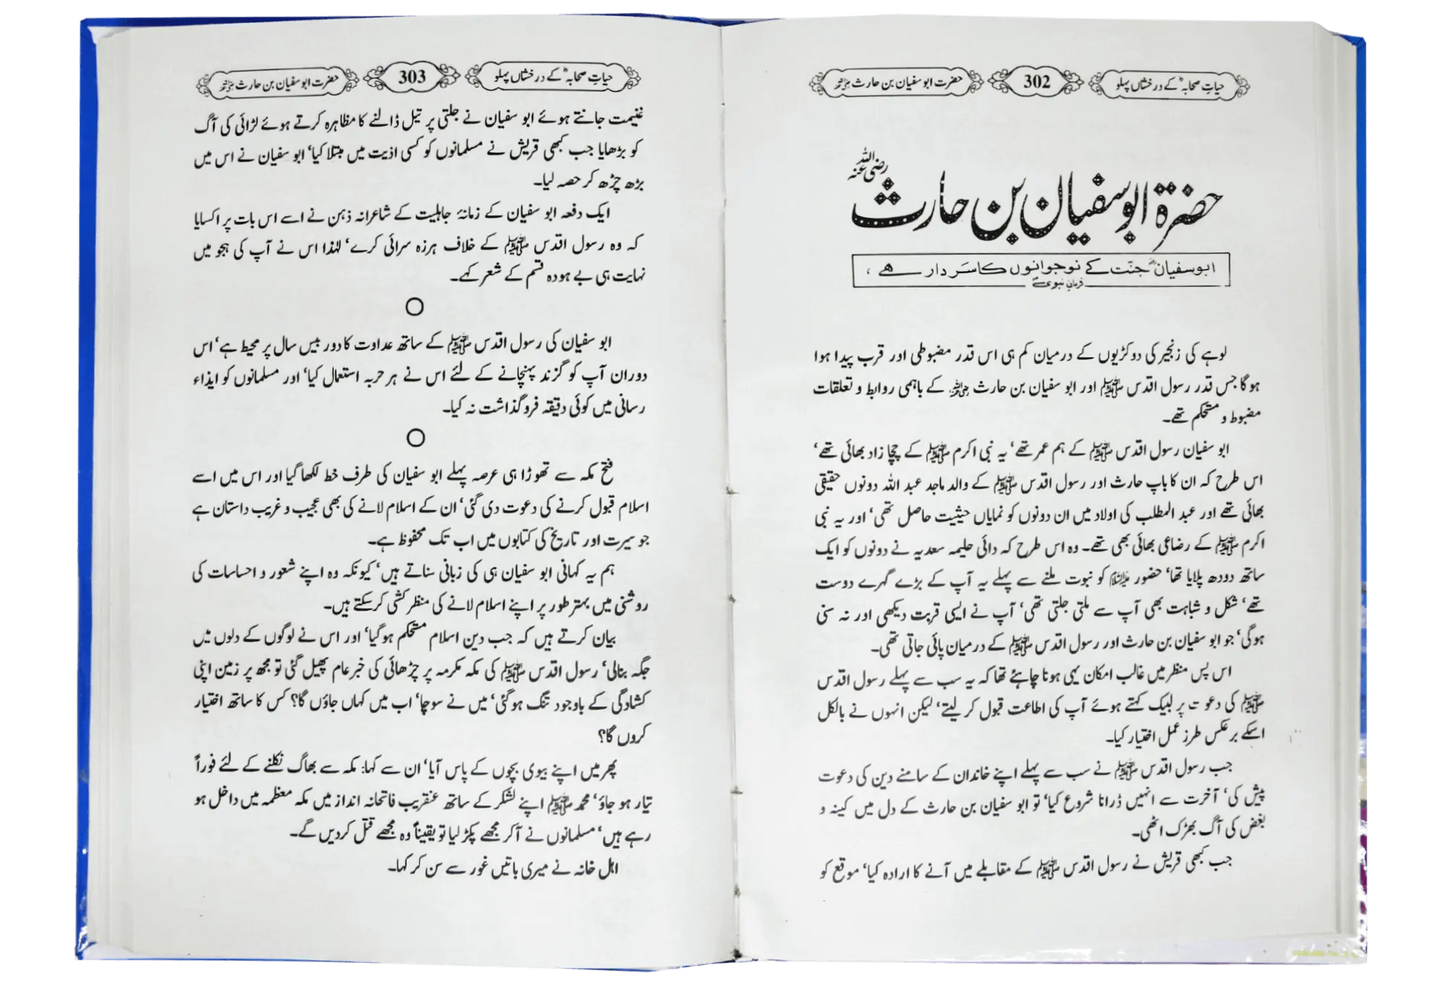 حیاتِ صحابہؓ کے درخشاں پہلو
302
حضرت ابو سفیان بن حارث رضی اللہ عنہ
حضرۃ ابو سفیان بن حارث رضی اللہ عنہ
ابو سفیانؓ جنّت کے نوجوانوں کا سَردار ہے،
فرمانِ نبویؐ
لوہے کی زنجیر کی دو کڑیوں کے درمیان کم ہی اس قدر مضبوطی اور قرب پیدا ہوا
ہوگا جس قدر رسول اقدس ﷺ اور ابو سفیان بن حارث رضی اللہ عنہ کے باہمی روابط و تعلقات
مضبوط و مستحکم تھے۔
ابو سفیان رسول اقدس ﷺ کے ہم عمر تھے‘ یہ نبی اکرم ﷺ کے چچا زاد بھائی تھے‘
اس طرح کہ ان کا باپ حارث اور رسول اقدس ﷺ کے والد ماجد عبد اللہ دونوں حقیقی
بھائی تھے اور عبد المطلب کی اولاد میں ان دونوں کو نمایاں حیثیت حاصل تھی‘ اور یہ نبی
اکرم ﷺ کے رضاعی بھائی بھی تھے۔ وہ اس طرح کہ دائی حلیمہ سعدیہ نے دونوں کو ایک
ساتھ دودھ پلایا تھا‘ حضور ﷺ کو نبوت ملنے سے پہلے یہ آپ کے بڑے گہرے دوست
تھے‘ شکل و شباہت بھی آپ سے ملتی جلتی تھی‘ آپ نے ایسی قربت دیکھی اور نہ سنی
ہوگی‘ جو ابو سفیان بن حارث اور رسول اقدس ﷺ کے درمیان پائی جاتی تھی۔
اس پس منظر میں غالب امکان یہی ہونا چاہئے تھا کہ یہ سب سے پہلے رسول اقدس
ﷺ کی دعوت پر لبیک کہتے ہوئے آپ کی اطاعت قبول کر لیتے‘ لیکن انہوں نے بالکل
اسکے برعکس طرز عمل اختیار کیا۔
جب رسول اقدس ﷺ نے سب سے پہلے اپنے خاندان کے سامنے دین کی دعوت
پیش کی‘ آخرت سے انہیں ڈرانا شروع کیا‘ تو ابو سفیان بن حارث کے دل میں کینہ و
بغض کی آگ بھڑک اٹھی۔
جب کبھی قریش نے رسول اقدس ﷺ کے مقابلے میں آنے کا ارادہ کیا‘ موقع کو
حیاتِ صحابہؓ کے درخشاں پہلو
303
حضرت ابو سفیان بن حارث رضی اللہ عنہ
غنیمت جانتے ہوئے ابو سفیان نے جلتی پر تیل ڈالنے کا مظاہرہ کرتے ہوئے لڑائی کی آگ
کو بڑھایا جب کبھی قریش نے مسلمانوں کو کسی اذیت میں مبتلا کیا‘ ابو سفیان نے اس میں
بڑھ چڑھ کر حصہ لیا۔
ایک دفعہ ابو سفیان کے زمانۂ جاہلیت کے شاعرانہ ذہن نے اسے اس بات پر اکسایا
کہ وہ رسول اقدس ﷺ کے خلاف ہرزہ سرائی کرے‘ لہٰذا اس نے آپ کی ہجو میں
نہایت ہی بے ہودہ قسم کے شعر کہے۔
○
ابو سفیان کی رسول اقدس ﷺ کے ساتھ عداوت کا دور بیس سال پر محیط ہے‘ اس
دوران آپ کو گزند پہنچانے کے لئے اس نے ہر حربہ استعمال کیا‘ اور مسلمانوں کو ایذاء
رسانی میں کوئی دقیقہ فروگذاشت نہ کیا۔
○
فتح مکہ سے تھوڑا ہی عرصہ پہلے ابو سفیان کی طرف خط لکھا گیا اور اس میں اسے
اسلام قبول کرنے کی دعوت دی گئی‘ ان کے اسلام لانے کی بھی عجیب و غریب داستان ہے
جو سیرت اور تاریخ کی کتابوں میں اب تک محفوظ ہے۔
ہم یہ کہانی ابو سفیان ہی کی زبانی سناتے ہیں‘ کیونکہ وہ اپنے شعور و احساسات کی
روشنی میں بہتر طور پر اپنے اسلام لانے کی منظر کشی کرسکتے ہیں۔
بیان کرتے ہیں کہ جب دین اسلام مستحکم ہوگیا‘ اور اس نے لوگوں کے دلوں میں
جگہ بنالی‘ رسول اقدس ﷺ کی مکہ مکرمہ پر چڑھائی کی خبر عام پھیل گئی تو مجھ پر زمین اپنی
کشادگی کے باوجود تنگ ہوگئی‘ میں نے سوچا‘ اب میں کہاں جاؤں گا؟ کس کا ساتھ اختیار
کروں گا؟
پھر میں اپنے بیوی بچوں کے پاس آیا‘ ان سے کہا: مکہ سے بھاگ نکلنے کے لئے فوراً
تیار ہو جاؤ‘ محمد ﷺ اپنے لشکر کے ساتھ عنقریب فاتحانہ انداز میں مکہ معظمہ میں داخل ہو
رہے ہیں‘ مسلمانوں نے آکر مجھے پکڑ لیا تو یقیناً وہ مجھے قتل کردیں گے۔
اہل خانہ نے میری باتیں غور سے سن کر کہا۔